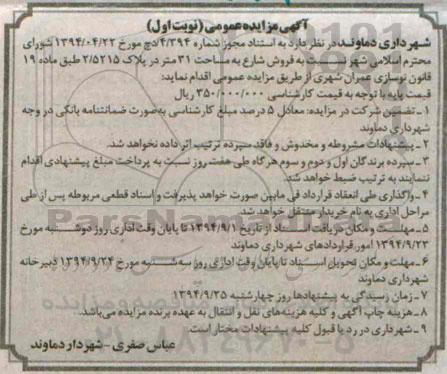 آگهی مزایده عمومی (نوبت اول)
شهرداری دماوند در نظر دارد به استناد مجوز شماره ۴/۳۹۴/دچ مورخ ۱۳۹۴/۰۴/۲۲ شورای
محترم اسلامی شهر نسبت به فروش شارع به مساحت ۳۱ متر در پلاک ۲/۵۲۱۵ طبق ماده ۱۹
قانون نوسازی عمران شهری از طریق مزایده عمومی اقدام نماید:
قیمت پایه با توجه به قیمت کارشناسی ۳۵۰/۰۰۰/۰۰۰ ریال
۱- تضمین شرکت در مزایده: معادل ۵ درصد مبلغ کارشناسی به‌صورت ضمانتنامه بانکی در وجه
شهرداری دماوند
۲- پیشنهادات مشروطه و مخدوش و فاقد سپرده ترتیب اثر داده نخواهد شد.
۳- سپرده برندگان اول و دوم و سوم هرگاه طی هفت روز نسبت به پرداخت مبلغ پیشنهادی اقدام
ننمایند به ترتیب ضبط خواهد شد.
۴- واگذاری طی انعقاد قرارداد فی مابین صورت خواهد پذیرفت و اسناد قطعی مربوطه پس از طی
مراحل اداری به نام خریدار منتقل خواهد شد.
۵- مهلت و مکان دریافت اسناد از تاریخ ۱۳۹۴/۹/۱ تا پایان وقت اداری روز دوشنبه مورخ
۱۳۹۴/۹/۲۳ امور قراردادهای شهرداری دماوند
۶- مهلت و مکان تحویل اسناد تا پایان وقت اداری روز سه‌شنبه مورخ ۱۳۹۴/۹/۲۴ دبیرخانه
شهرداری دماوند
۷- زمان رسیدگی به پیشنهادها روز چهارشنبه ۱۳۹۴/۹/۲۵
۸- هزینه چاپ آگهی و کلیه هزینه‌های نقل و انتقال به عهده برنده مزایده می‌باشد.
۹- شهرداری در رد یا قبول کلیه پیشنهادات مختار است.
عباس صفری - شهردار دماوند
ParsNamadData